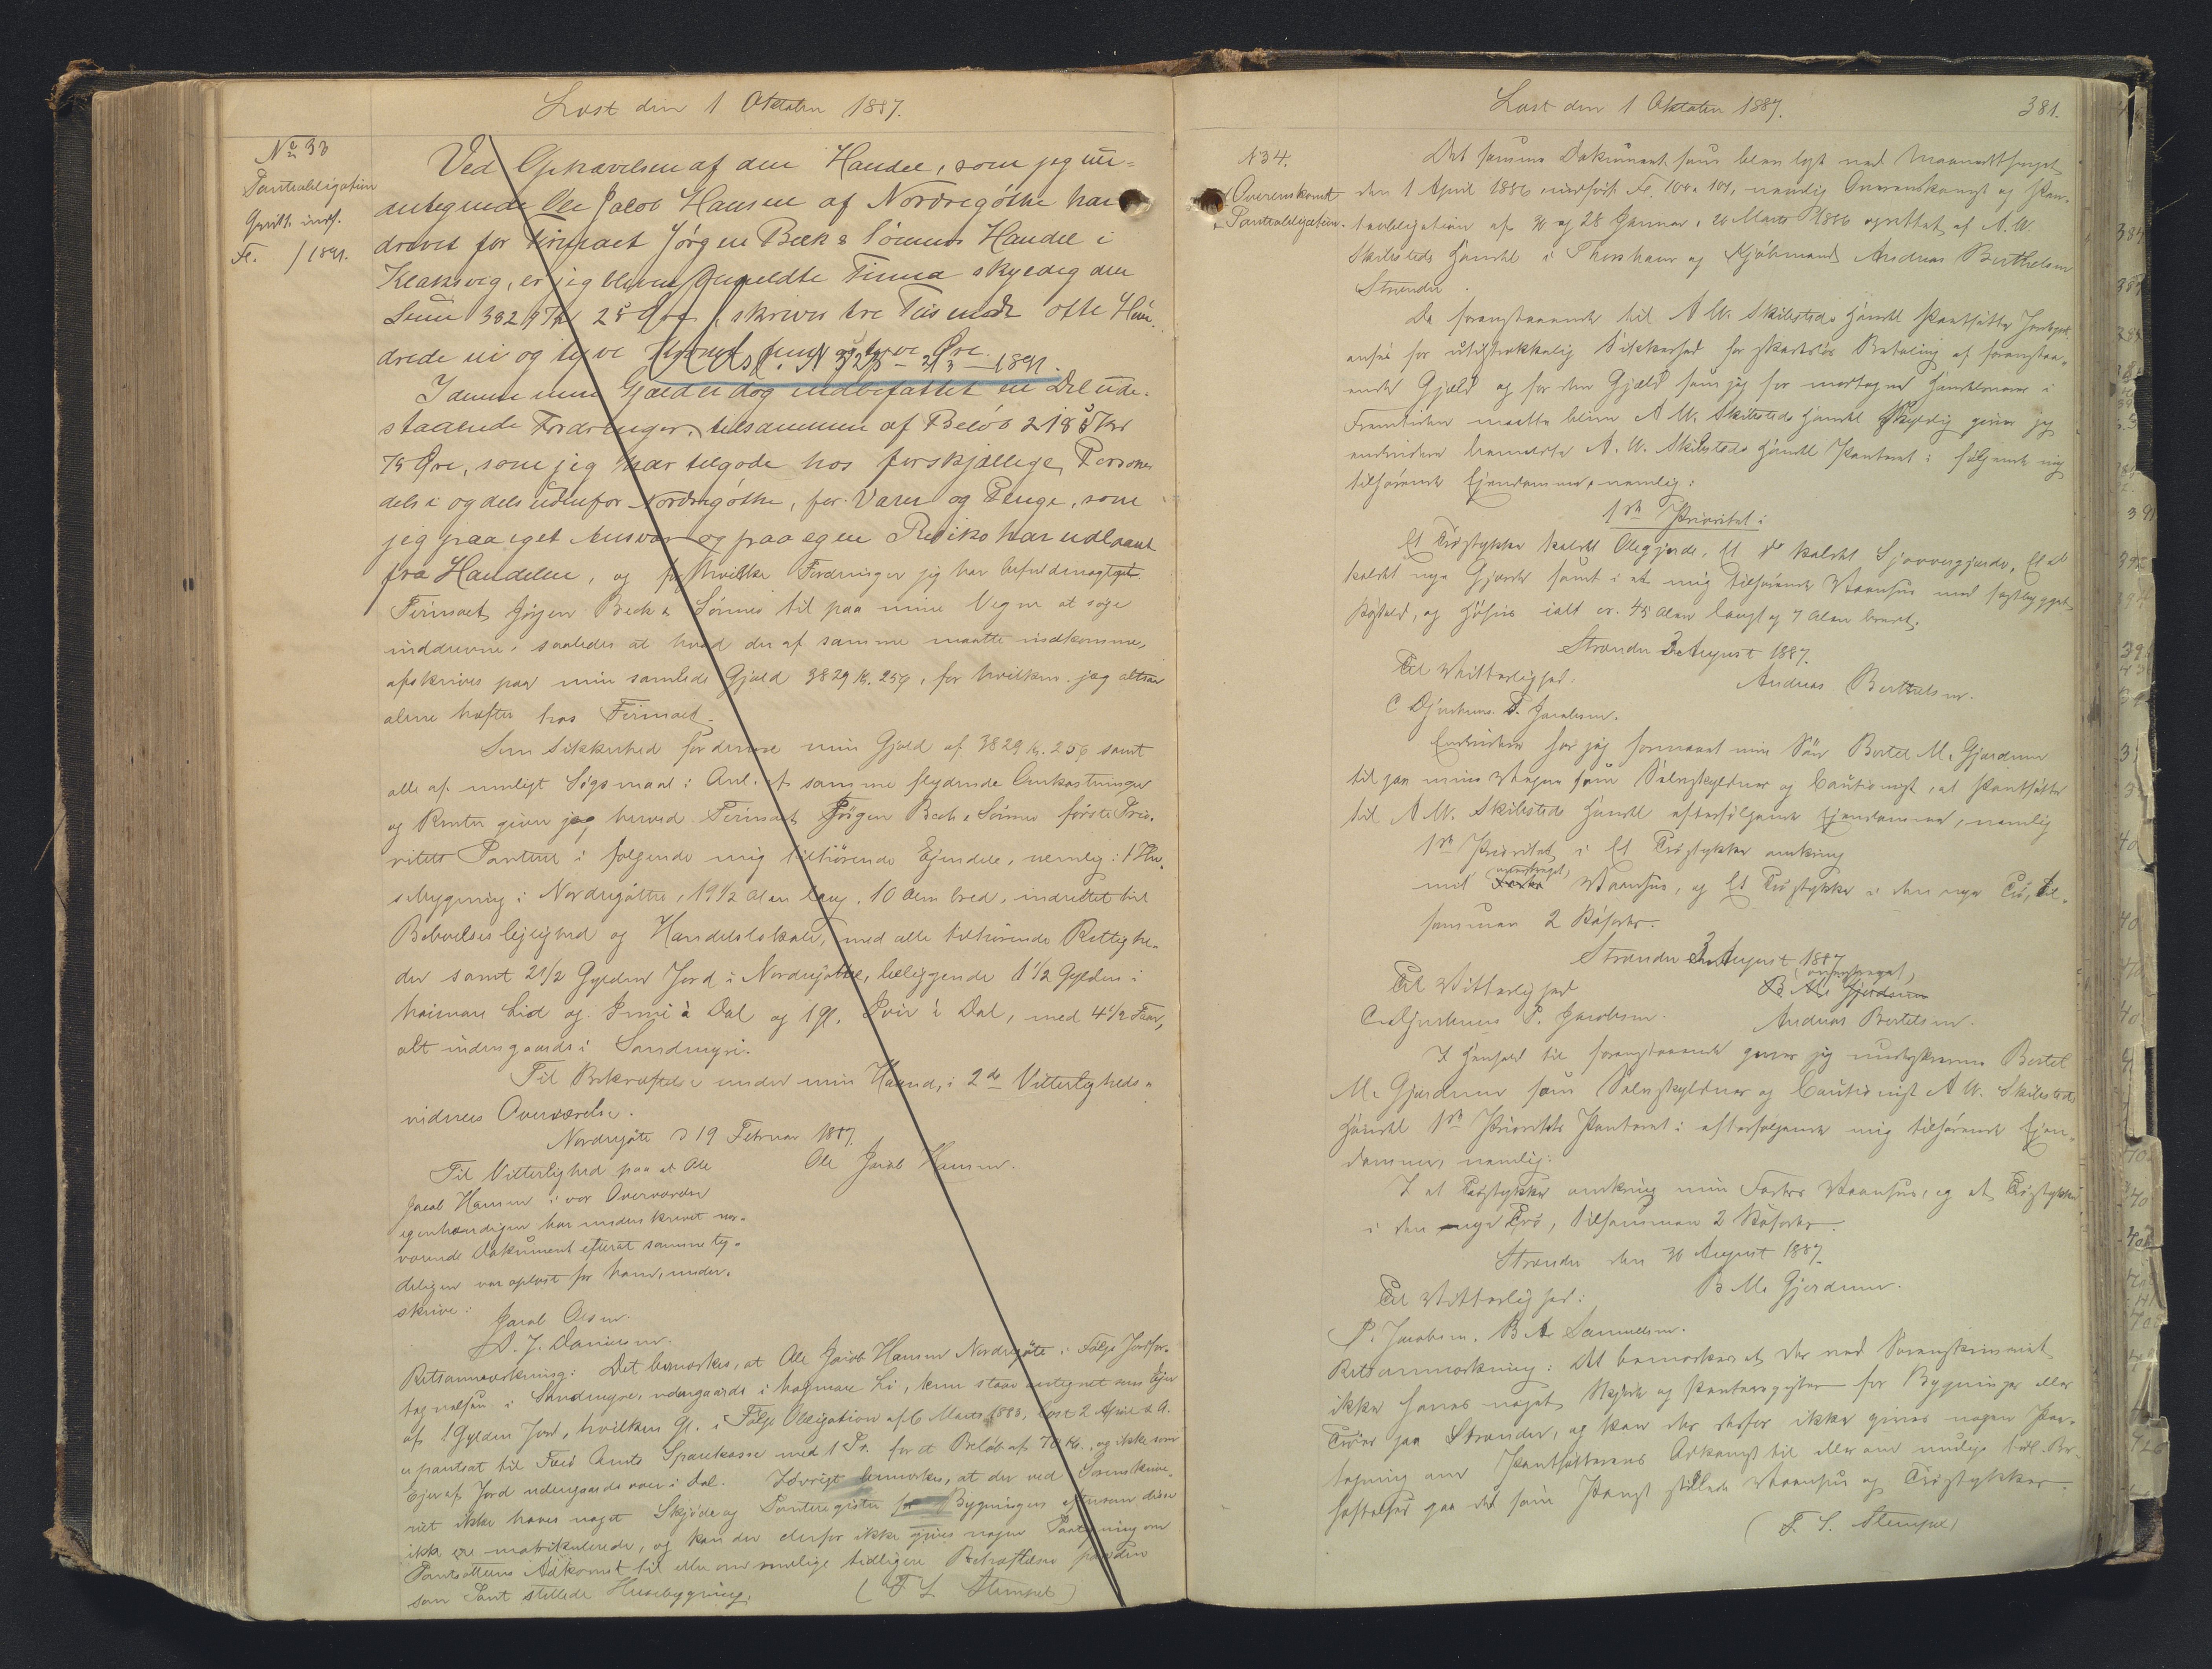 Læst den 1 Oktober 1887.
No 33
Panteobligation
Qvitt. indf.
Fr. / 1891.
Ved Ophævelsen af den Handel, som jeg un-
dertegnede Ole Jacob Hansen af Nordregöthe har
drevet for Firmaet Jörgen Beck & Sönners Handel i
Klaksvig, er jeg bleven Anmeldte Firma skyldig den
Sum 3829 Kr 25 Øre, skriver tre Tusinde otte Hun-
drede ni og tyve Kroner fem og tyve Øre.
Udsl. N 32 - 2/3 - 1891.
I denne min Gjæld er dog indbefattet en Del ude-
staaende Fordringer, tilsammen af Belöb 2185 Kr
75 Øre, som jeg har tilgode hos forskjællige Personer
dels i og dels udenfor Nordregöthe, for Varer og Penge, som
jeg paa eget Ansvar og paa egen Risiko har udlaant
fra Handelen, og for hvilke Fordringer jeg har befuldmægtiget
Firmaet Jörgen Beck & Sönner til paa mine Vegne at söge
inddrevne, saaledes at hvad der af samme maatte indkomme,
afskrives paa min samlede Gjæld 3829 Kr. 25 Ø, for hvilken jeg altsaa
alene hæfter hos Firmaet.
Som Sikkerhed for denne min Gjæld af 3829 Kr. 25 Ø samt
alle af muligt Sögsmaal i Anl. af samme flydende Omkostninger
og Renter giver jeg herved Firmaet Jörgen Beck & Sönner förste Prio-
ritets Panteret i fölgende mig tilhörende Ejendele, nemlig: 1 Hu-
sebygning i Nordregöthe, 19 1/2 Alen lang, 10 Alen bred, indrettet til
Beboelseslejlighed og Handelslokale, med alle tilhörende Rettighe-
der samt 2 1/2 Gylden Jord i Nordregöthe, beliggende 1 1/2 Gylden i
heimare Lid og Inni à Dal og 1 Gl. i Dal, med 4 1/2 Faar,
alt undergaards i Sandmyri.
Til Bekræftelse under min Haand, i 2de Vitterligheds-
vidners Overværelse.
Nordregöte d 19 Februar 1887.
Til Vitterlighed paa at Ole Ole Jacob Hansen.
Jacob Hansen i vor Overværelse
egenhændigen har underskrevet nær-
værende Dokument efterat samme ty-
deligen var oplæst for ham, under-
skrive:
Jacob Olsen.
D. J. Danielsen.
Retsanmærkning: Det bemærkes, at Ole Jacob Hansen Nordregöte i Fölge Jordfor-
tegnelsen i Sandmyre, undergaards i hagmare Li, kun staar antegnet som Ejer
af 1 Gylden Jord, hvilken Gl. i Fölge Obligation af 6 Marts 1883, læst 2 April s. A.
er pantsat til Færö Amts Sparekasse med 1 Pr. for et Belöb af 70 Kr., og ikke som
Ejer af Jord undergaards i Dal. Iövrigt bemærkes, at der ved Sorenskrive-
riet ikke haves noget Skjöde og Panteregister for Bygninger eftersom disse
ikke ere matrikulerede, og kan der derfor ikke gives nogen Paategning om
Pantsætterens Adkomst til eller om mulige tidligere Behæftelser paa den
som Pant stillede Husebygning.
(F. L. Stempel)
Læst den 1 Oktober 1887.
381.
N 34.
Overenskomst
& Panteobligation.
Det samme Dokument som blev lyst ved Maanedsthinget
den 1 April 1886, indfört Fr. 100 & 101, nemlig Overenskomst og Pan-
teobligation af og 28 Januar, 20 Marts 1886 oprettet af A. W.
Skibsteds Handel i Thorshavn og Kjöbmand Andreas Berthelsen
Strender.
Da foranstaaende til A W. Skibsteds Handel pantsatte
anses for utilstrækkelig Sikkerhed for skadeslös Betaling af foranstaa-
ende Gjæld og for den Gjæld som jeg for modtagne Handelsvarer i
Fremtiden maatte blive A W. Skibsteds Handel skyldig giver jeg
endvidere bemeldte A. W. Skibsteds Handel Panteret i fölgende mig
tilhörende Ejendomme, nemlig:
1ste Prioritet i
Et Tröstykke kaldet Olegjerde, Et do kaldet, Et do
kaldet nye Gjerde samt i et mig tilhörende Vaanhus med fastbygget
, og ialt cr. 45 Alen langt og 7 Alen bredt.
Strender 3 August 1887.
Til Vitterlighed: Andreas Berthelsen.
C Djurhuus. P. Jacobsen.
Endvidere har jeg formaaet min Sön Bertel M. Gjerdum
til paa mine Vegne som Selvskyldner og Cautionist, at pantsætte
til A W. Skibsteds Handel efterfölgende Ejendomme, nemlig
1ste Prioritet i Et Tröstykke omkring
mit (overstreget) Vaanhus, og Et Tröstykke i den nye Trö, til-
sammen 2
Strender 3 August 1887
(overstreget)
Til Vitterlighed B. M. Gjerdum
C. Djurhuus P. Jacobsen. Andreas Bertelsen.
I Henhold til foranstaaende giver jeg underskrevne Bertel
M. Gjerdum som Selvskyldner og Cautionist A W. Skibsteds
Handel 1ste Prioritets Panteret i efterfölgende mig tilhörende Ejen-
domme, nemlig:
I et Tröstykke omkring min Faders Vaanhus, og et Tröstykke
i den nye Trö, tilsammen 2
Strender den 30 August 1887.
Til Vitterlighed: B M. Gjerdum.
P. Jacobsen. B A. Samuelsen.
Retsanmærkning: Det bemærkes at der ved Sorenskriveriet
ikke haves noget Skjöde og Panteregister for Bygninger eller
Tröer paa Strender, og kan der derfor ikke gives nogen Paa-
tegning om Pantsætterens Adkomst til eller om mulige tidl. Be-
hæftelser paa det som Pant stillede Vaanhus og Tröstykker.
(F. L. Stempel)